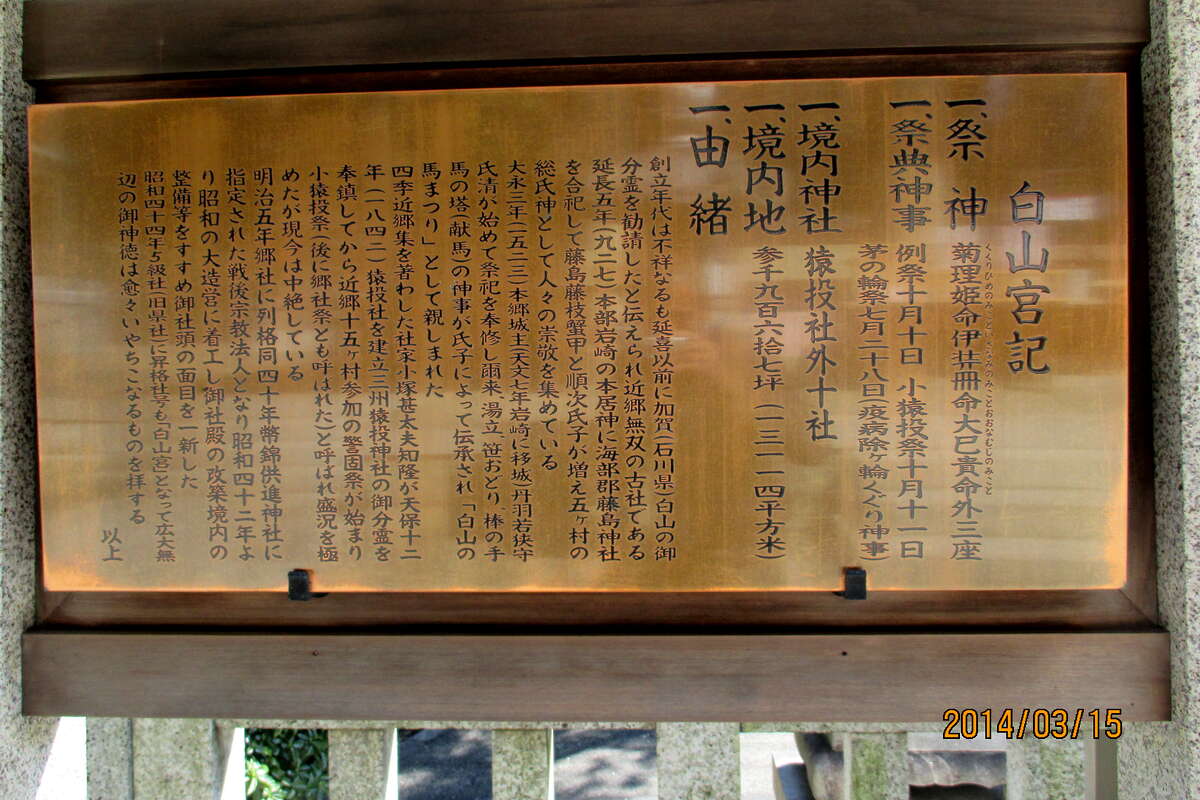 白山宮記
一、祭神 菊理姫命伊弉冊命大己貴命外三座
くくりひめのみこといざなみのみことおおなむじのみこと
一、祭典神事 例祭十月十日 小猿投祭十月十一日
茅の輪祭七月二十八日(疫病除ヶ輪くぐり神事)
一、境内神社 猿投社外十社
一、境内地 参千九百六拾七坪(一三一一四平方米)
一、由緒
創立年代は不祥なるも延喜以前に加賀(石川県)白山の御
分霊を勧請したと伝えられ近郷無双の古社である
延長五年(九二七)本部岩崎の本居神に海部郡藤島神社
を合祀して藤島藤枝蟹甲と順次氏子が増え五ヶ村の
総氏神として人々の崇敬を集めている
大永三年(一五二三)本郷城主(天文七年岩崎に移城)丹羽若狭守
氏清が始めて祭祀を奉修し爾来、湯立、笹おどり、棒の手
馬の塔(献馬)の神事が氏子によって伝承され「白山の
馬まつり」として親しまれた
四季近郷集を著わした社家小塚甚太夫知隆が天保十二
年(一八四二)猿投社を建立三州猿投神社の御分霊を
奉鎮してから近郷十五ヶ村参加の警固祭が始まり
小猿投祭(後に郷社祭とも呼ばれた)と呼ばれ盛況を極
めたが現今は中絶している
明治五年郷社に列格同四十年幣錦供進神社に
指定された戦後宗教法人となり昭和四十二年よ
り昭和の大造宮に着工し御社殿の改築境内の
整備等をすすめ御社頭の面目を一新した
昭和四十四年5級社(旧県社)に昇格社号も「白山宮」となって広大無
辺の御神徳は愈々いやちこなるものを拝する
以上
2014/03/15